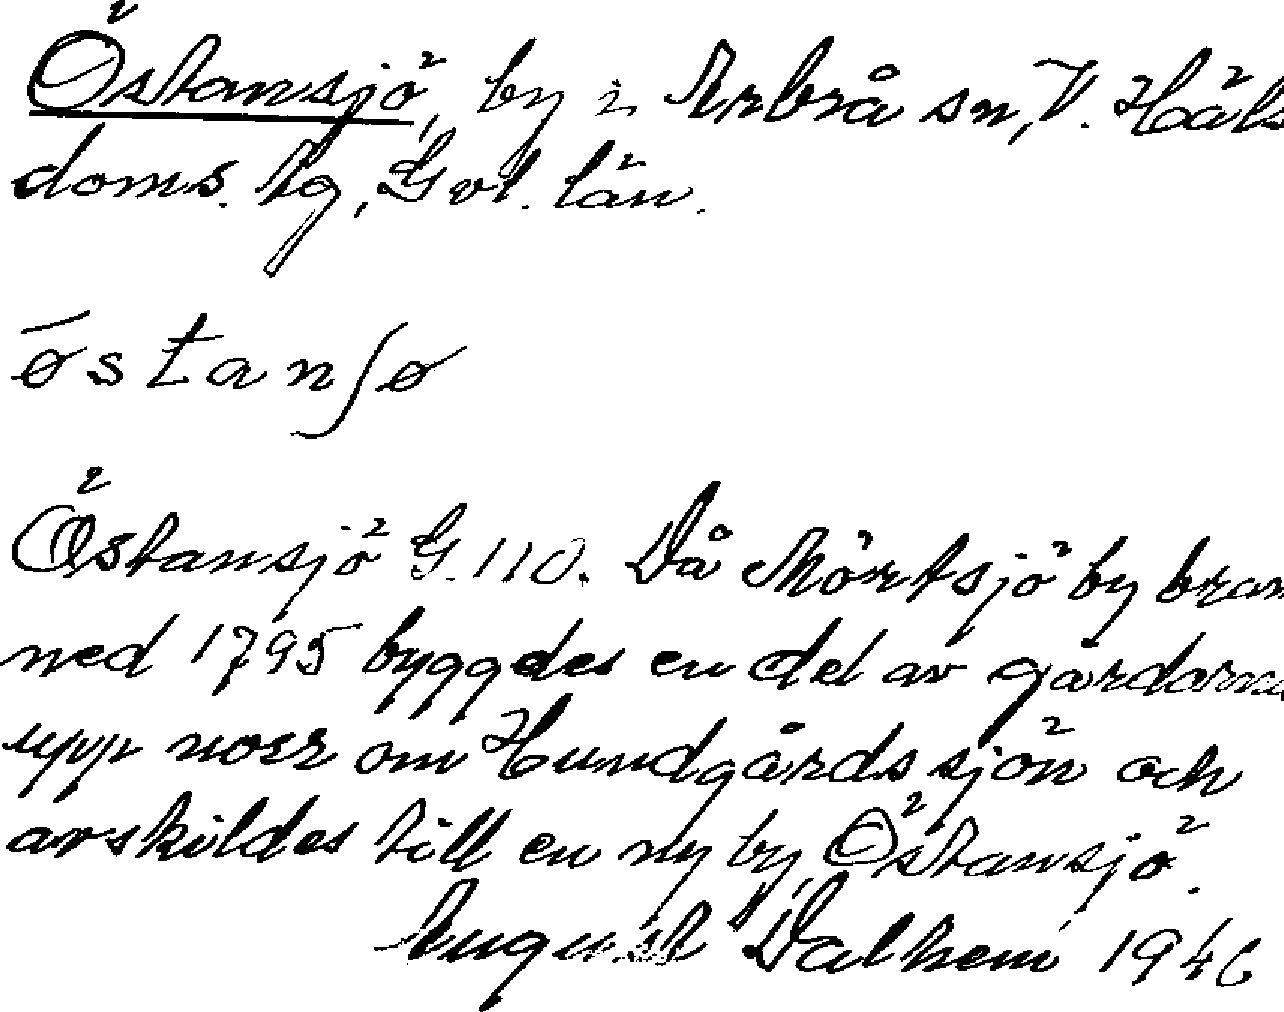 Östansjö, by i Arbrå sn, V. Häls
doms. tg, Gvl. län.
östanʃø
Östansjö G. 110. Då Mörtsjö by bran
ned 1795 byggdes en del av gårdarna
upp norr om Hundgårdssjön och
avskildes till en ny by, Östansjö.
August Dalhem 1946